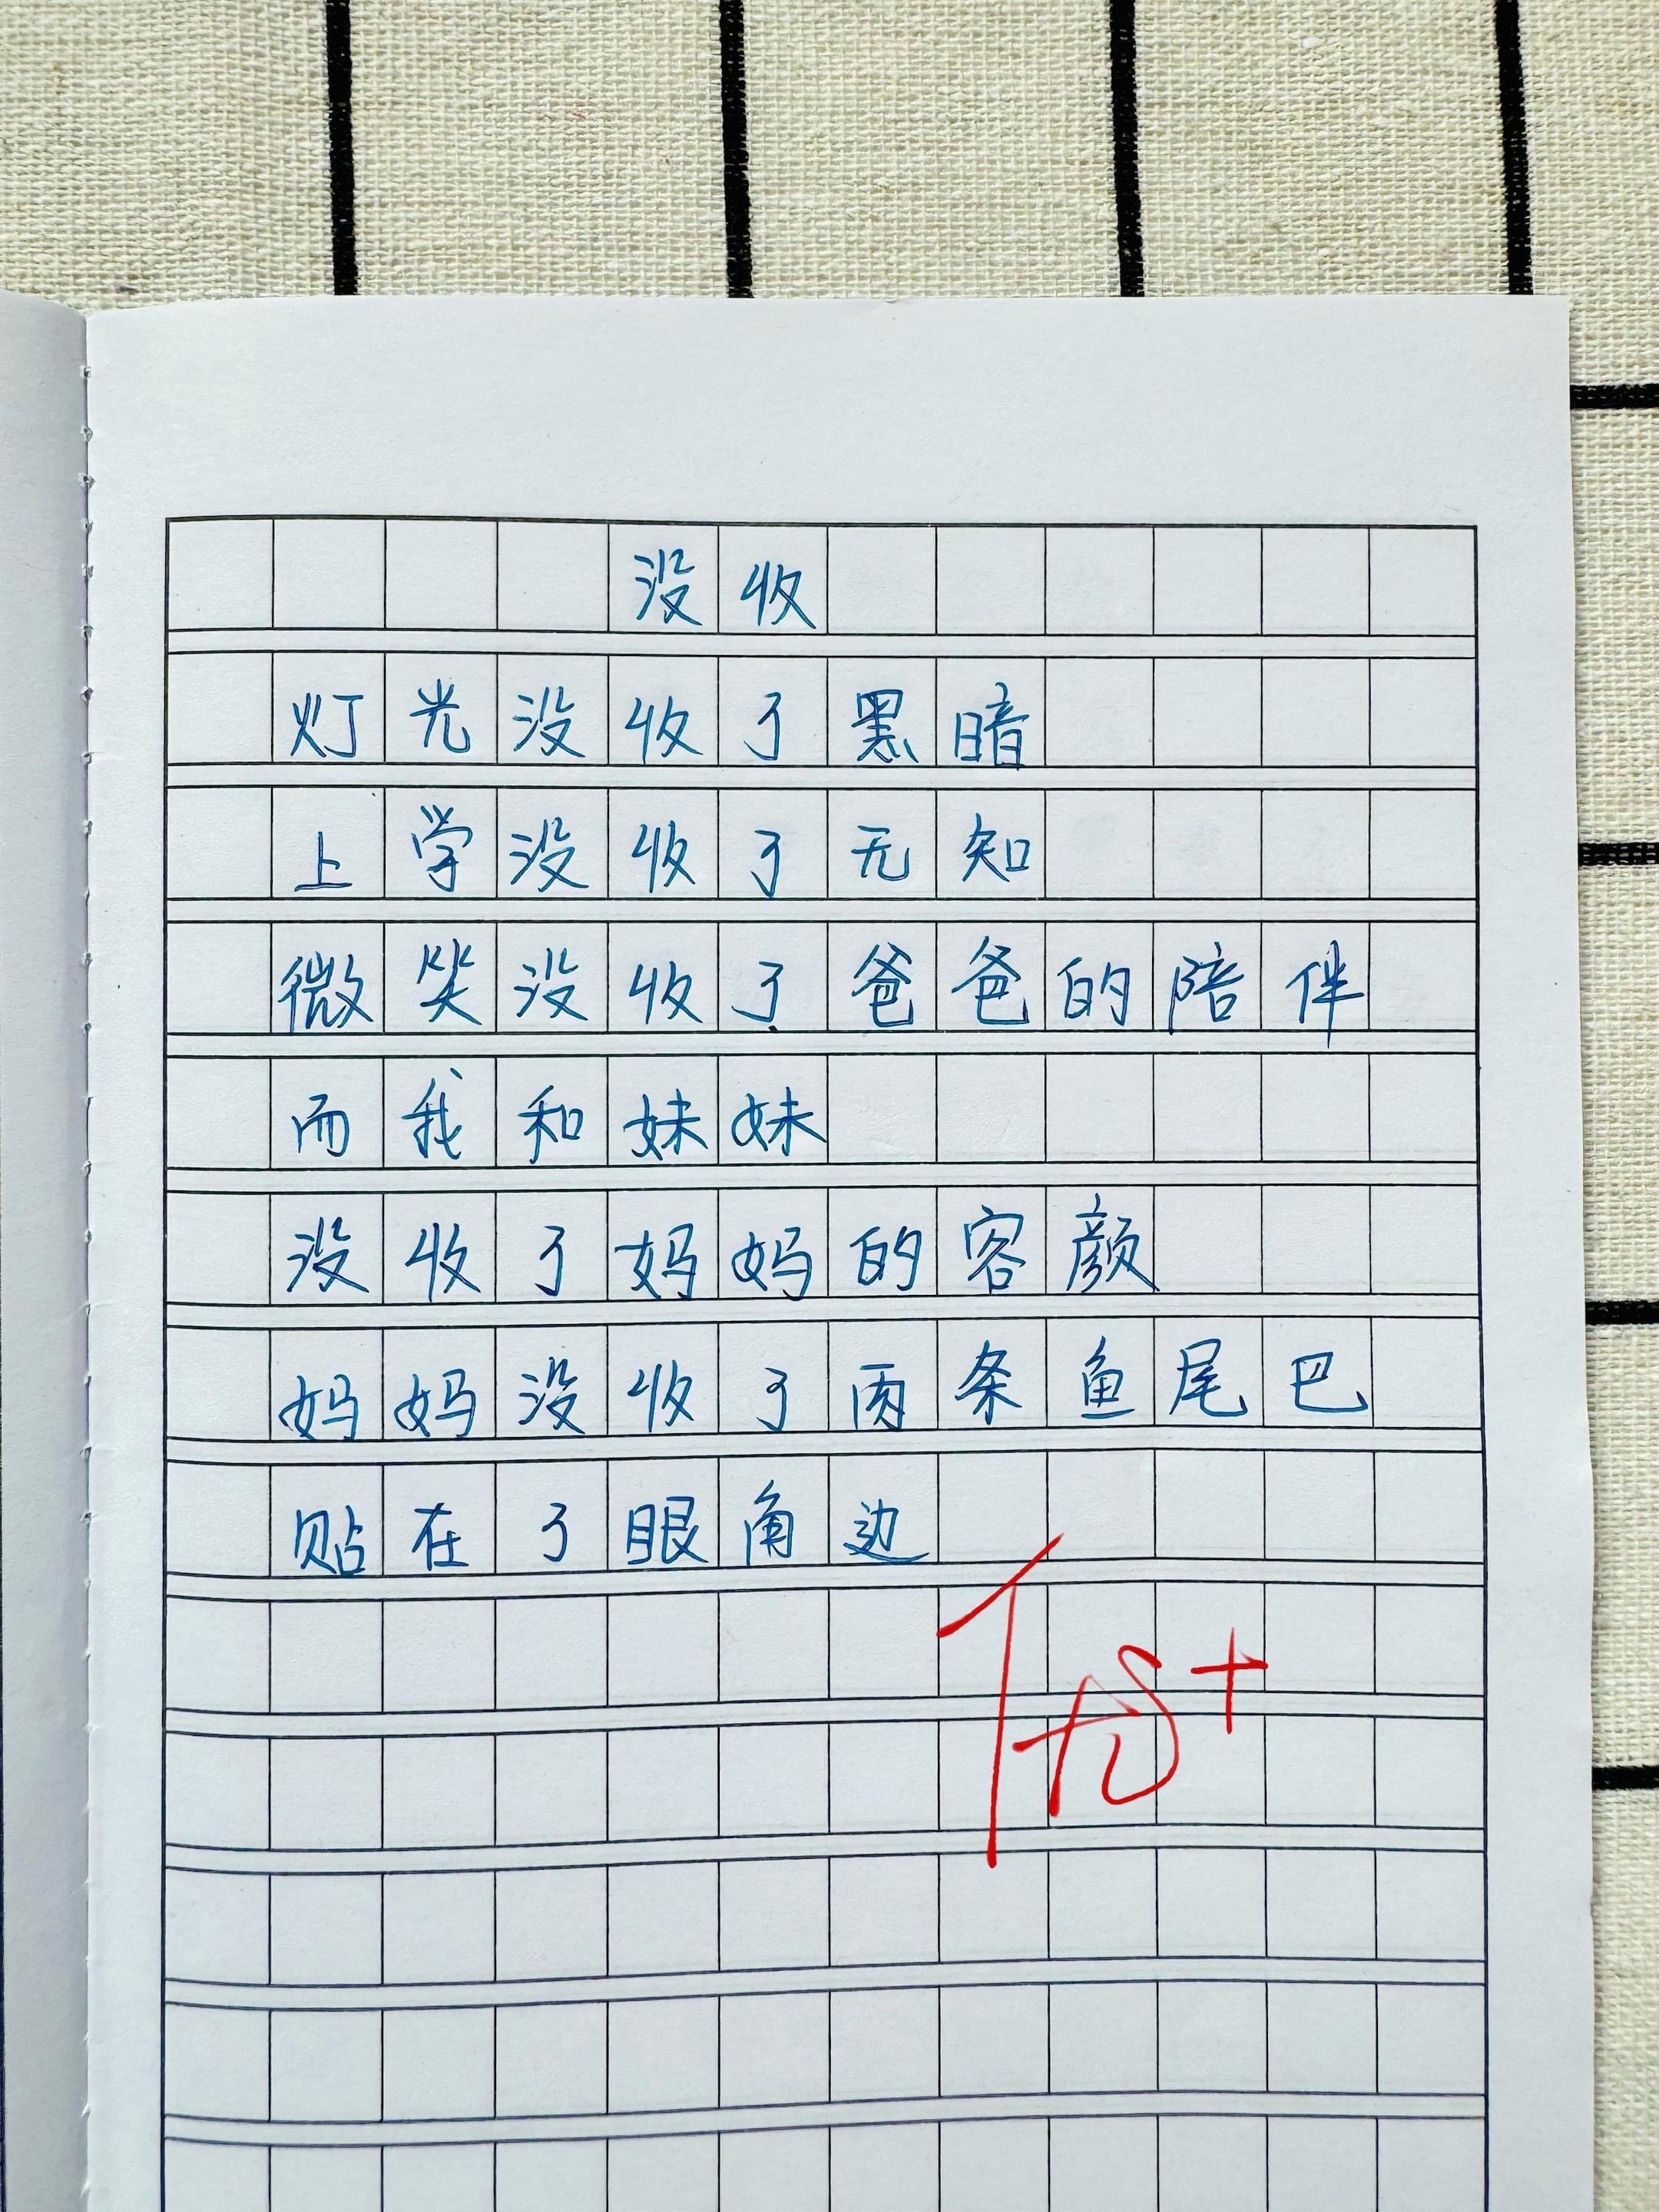 没收
灯光没收了黑暗
上学没收了无知
微笑没收了爸爸的陪伴
而我和妹妹
没收了妈妈的容颜
妈妈没收了两条鱼尾巴
贴在了眼角边